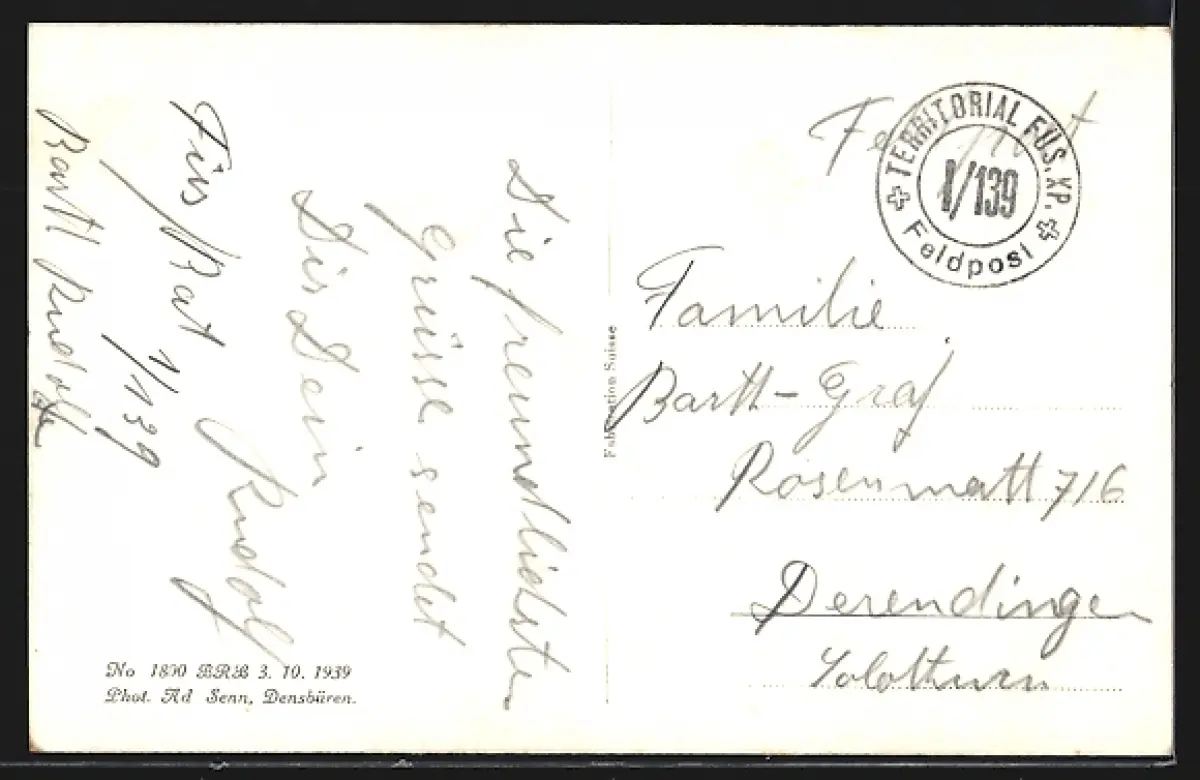 Die freundlichsten
Grüsse sendet
Dir Dein
Rudolf
Füs/Bat 1/139
Bartl Rudolf
No 1890 BRB 3. 10. 1939
Phot. Ad Senn, Densbüren.
Fabrication Suisse
Feldpost
TERRITORIAL FÜS. KP.
I/139
Feldpost
Familie
Bartl-Graf
Rosenmatt 716
Derendingen
Solothurn